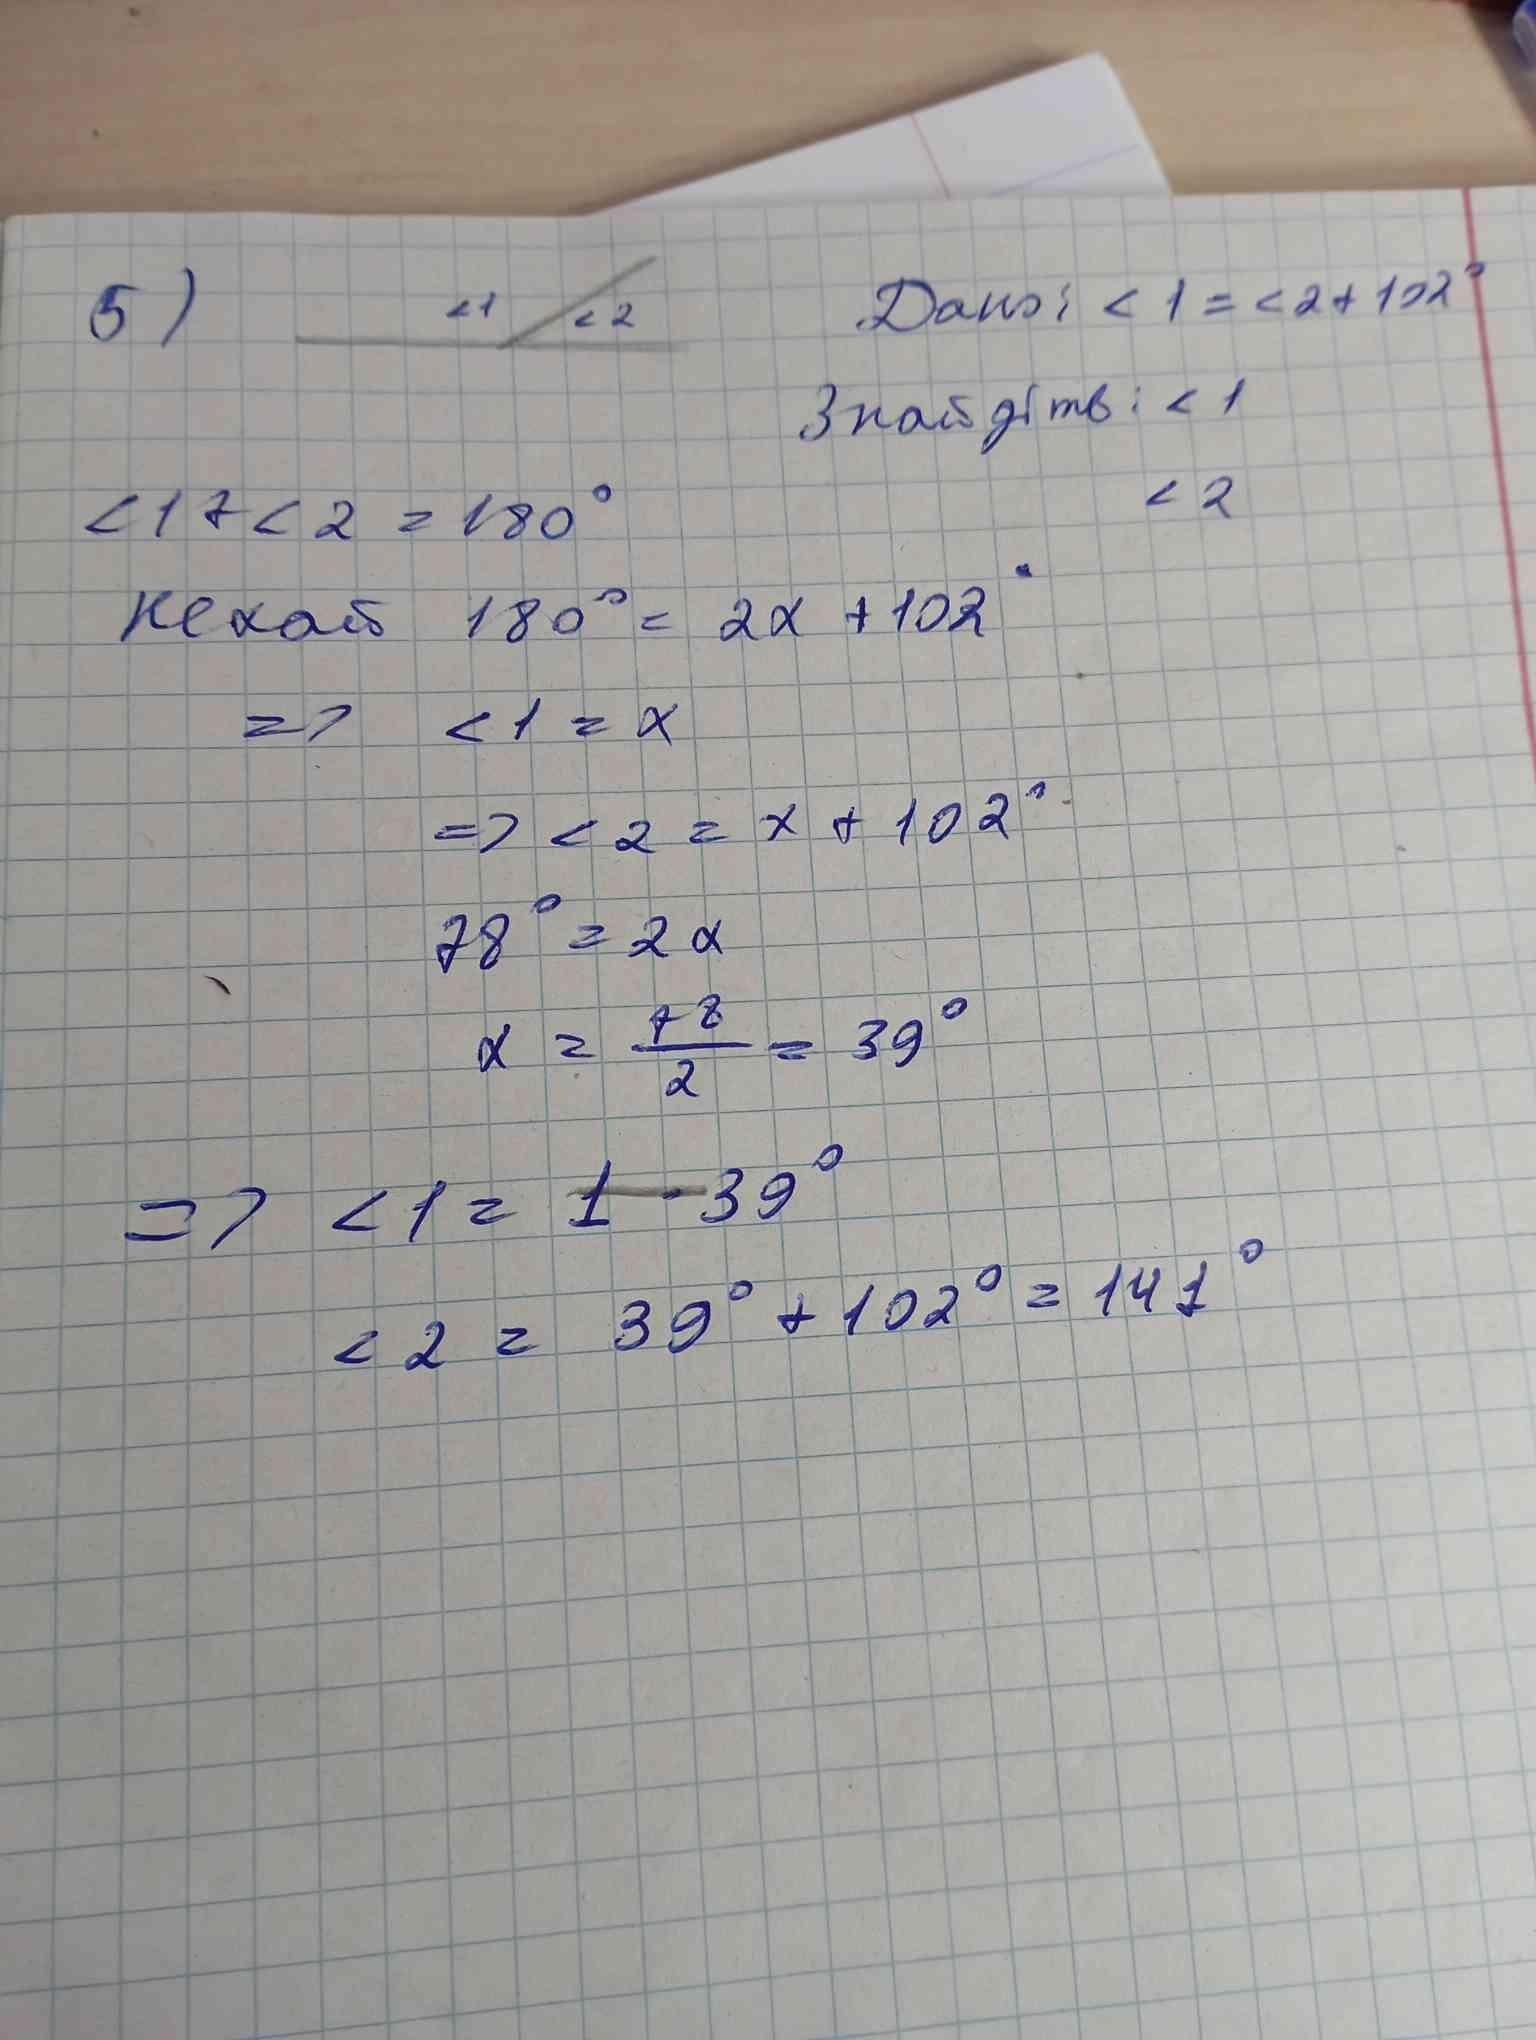 5) <1 <2 Дано: <1 = <2 + 102°
Знайдіть: <1
<2
<1 + <2 = 180°
Нехай 180° = 2x + 102°
=> <1 = x
=> <2 = x + 102°
78° = 2x
x = 78/2 = 39°
=> <1 = 39°
<2 = 39° + 102° = 141°